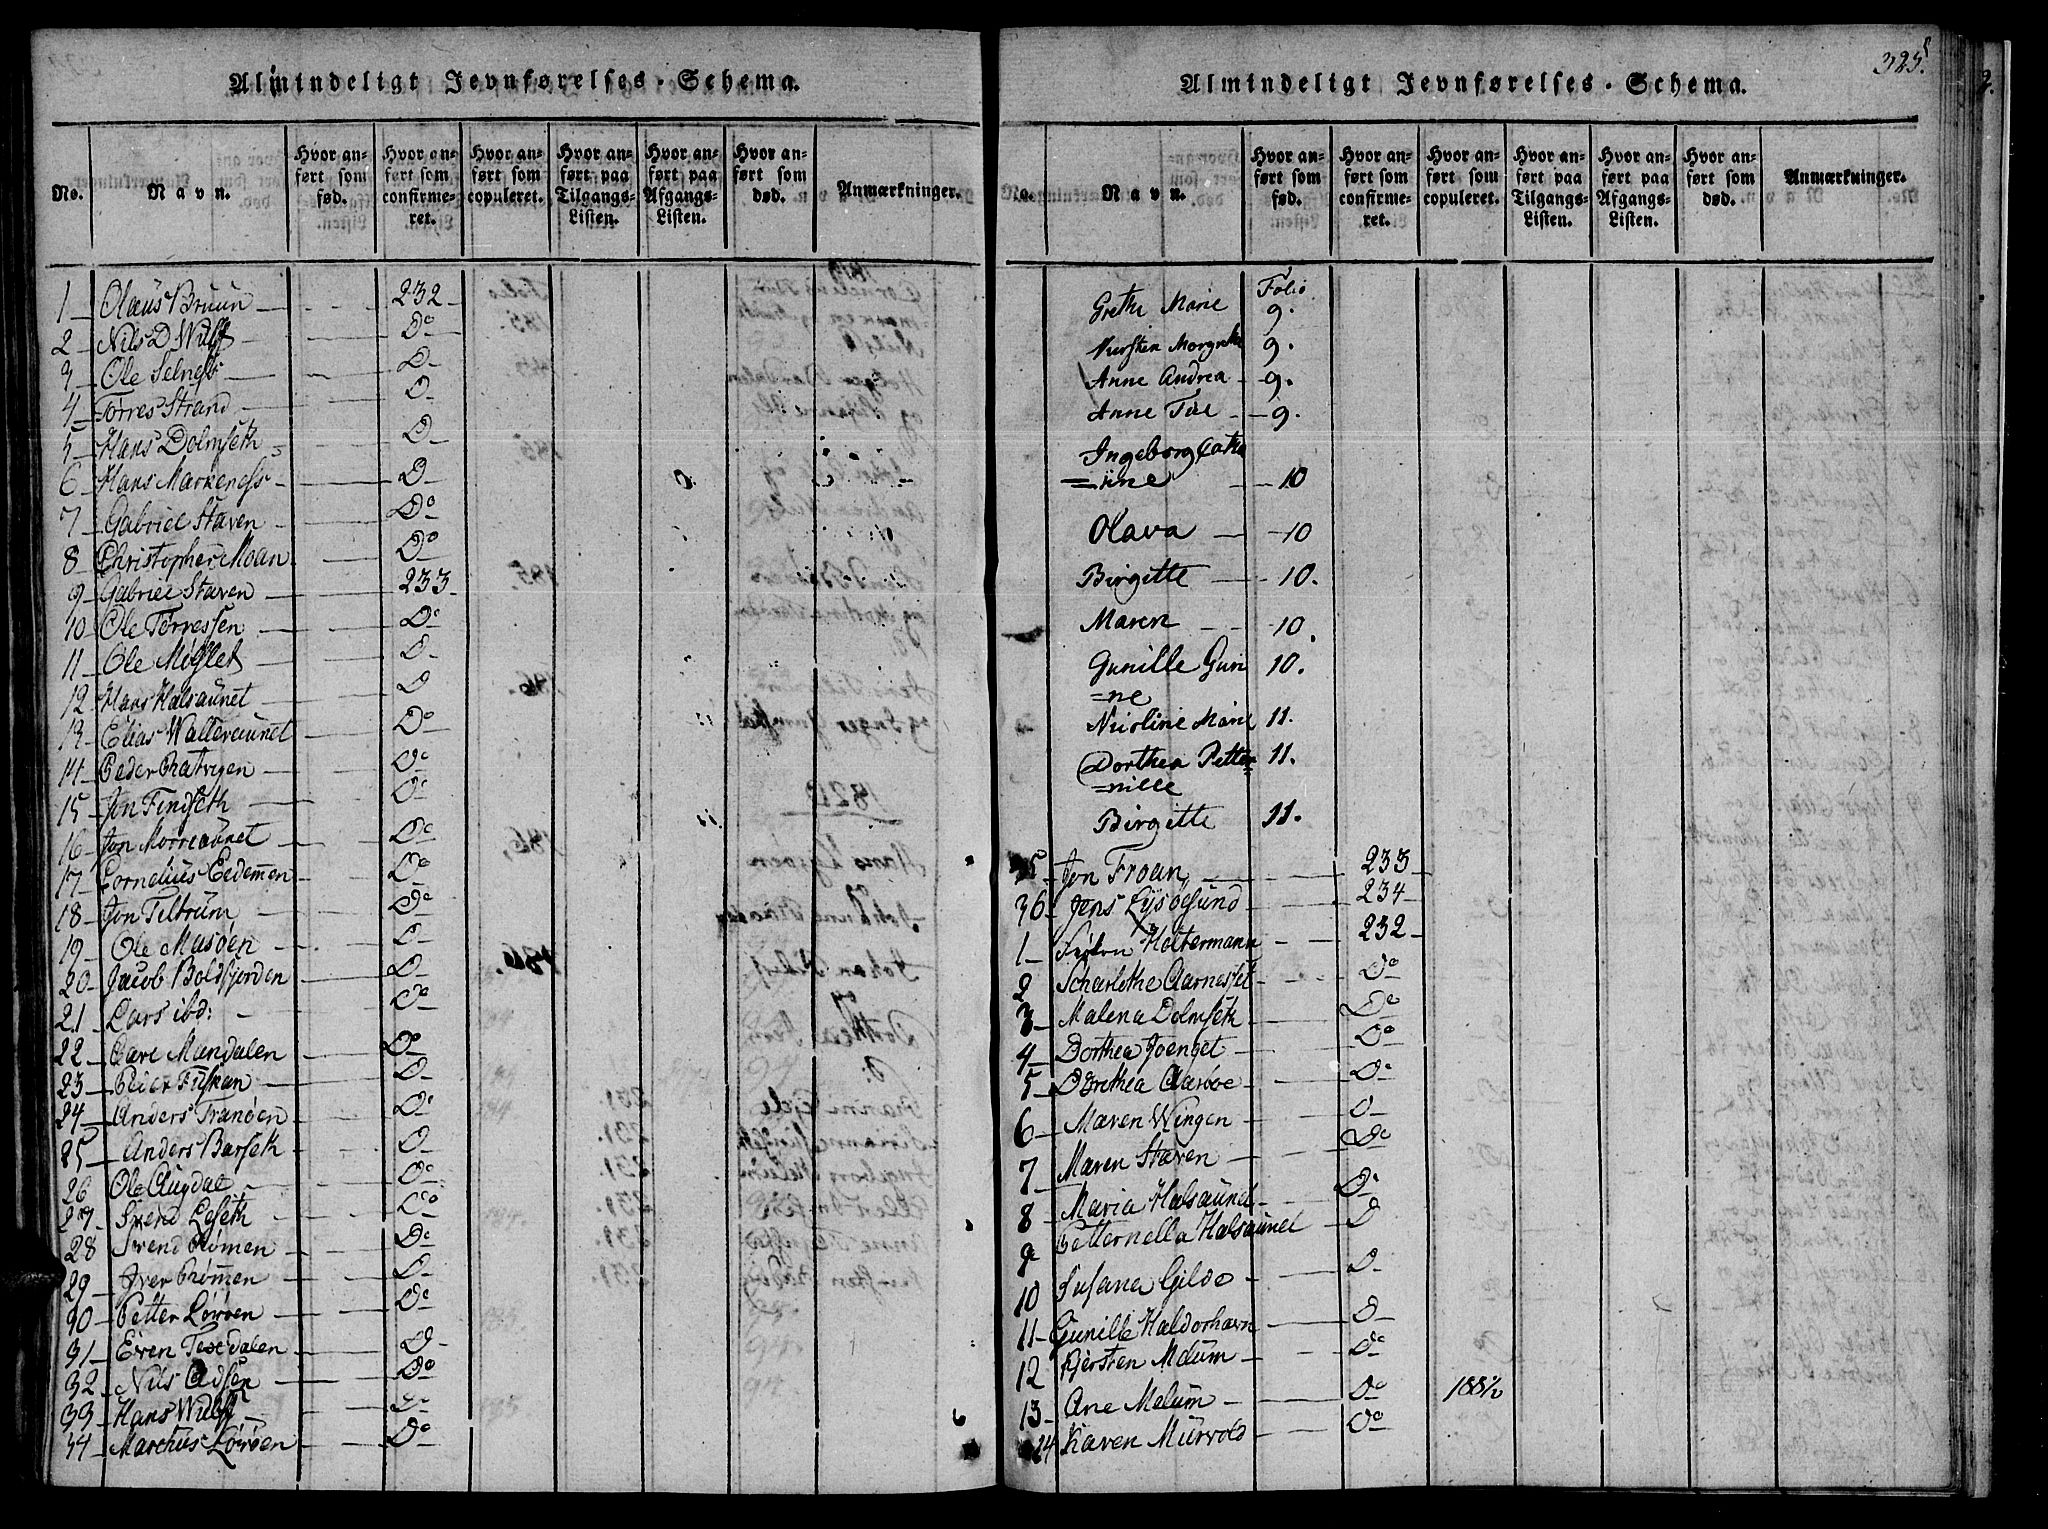 Almindeligt Jevnførelses-Schema.
No. Navn. Hvor anført som fød. Hvor anført som confirmeret. Hvor anført som copuleret. Hvor anført paa Tilgangs-Listen. Hvor anført paa Afgangs-Listen. Hvor anført som død. Anmærkninger.
1 Olaus Bruun 232
2 Nils D Wulff Do
3 Ole Selness D
4 Torres Strand D
5 Hans Dolmseth D
6 Hans Markeness D
7 Gabriel Staven Do
8 Christopher Moan Do
9 Gabriel Staven 233
10 Ole Torressen Do
11 Ole D
12 Hans Halsaunet D
13 Elias Do
14 Peder Do
15 Jon Findseth Do
16 Jon Morreaunet Do
17 Cornelius Do
18 Jon Teltrum Do
19 Ole Masöen D
20 Jacob D
21 Lars ibd: Do
22 Carl Mandalen Do
23 Peter D
24 Anders Tranöen Do
25 Anders Barseth D
26 Ole Augdal Do
27 Svend Leseth Do
28 Svend Rømmen Do
29 Iver Rømmen D
30 Petter Lørøen Do
31 Even D
32 Nils Do
33 Hans Wulff
34 Marchus Lørøen Do
325
Almindeligt Jevnførelses-Schema.
No. Navn. Hvor anført som fød. Hvor anført som confirmeret. Hvor anført som copuleret. Hvor anført paa Tilgangs-Listen. Hvor anført paa Afgangs-Listen. Hvor anført som død. Anmærkninger.
Folio
Grethe Marie 9.
9.
Anne Andrea 9.
Anne 9.
Ingeborg Catha
=rine 10
Olava 10
Birgitte 10.
Maren 10.
Gunille Guri 10.
=ne
Nicoline Marie 11.
Dorthea Petter 11.
=nille
Birgitte 11.
Jon Froan 233
36 Jens Lysøesund 234
1 Holtermann 232
2 Do
3 Malena Dolmseth Do
4 Dorthea Do
5 Dorethea Aarøe Do
6 Maren Wingen D
7 Maren Staven Do
8 Maria Halsaunet Do
9 Petternella Halsaunet D
10 Susana Gilde D
11 Gunille Haldorhavn D
12 Kjersten Melum Do
13 Ane Melum Do 188½
14 Karen Murvold Do